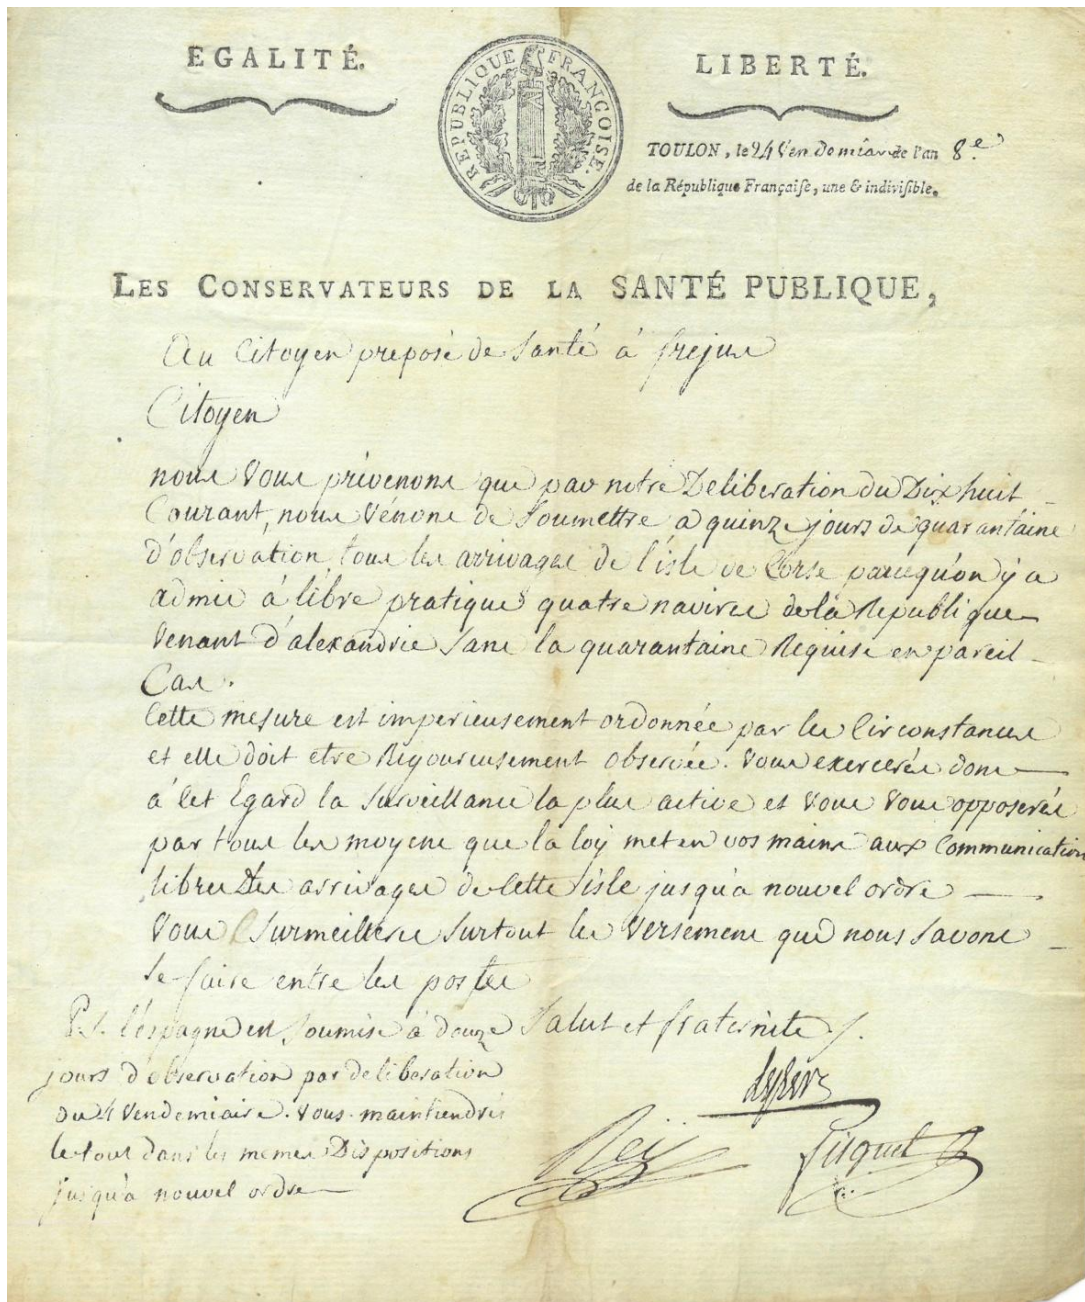 EGALITÉ.
REPUBLIQUE FRANÇOISE.
LIBERTÉ.
TOULON, le 24 Vendemiare de l'an 8.e
de la République Françaiſe, une & indiviſible.
LES CONSERVATEURS DE LA SANTÉ PUBLIQUE,
Au Citoyen preposé de Santé à frejus
Citoyen
nous Vous prévenons que par notre Deliberation du Dix huit
Courant, nous Vénons de Soumettre a quinze jours de quarantaine
d'observation tous les arrivages de l'isle de Corse parcequ'on y a
admis à libre pratique quatre navires de la Republique
Venant d'alexandrie Sans la quarantaine Requise en pareil
Cas.
Cette mesure est imperieusement ordonnée par les Circonstances
et elle doit etre Rigoureusement observée. Vous exercerés donc
à Cet Egard la Surveillance la plus active et Vous Vous opposerés
par tous les moyens que la loy met en vos mains aux Communication
libres Des arrivages de Cette isle jusqu'a nouvel ordre
Vous Surveillerés Surtout les Versemens que nous Savons
Se faire entre les postes
Salut et fraternité
P.S. l'espagne est Soumise à douze
jours d'observation par deliberation
du 4 Vendemiaire. Vous maintiendrés
le tout dans les memes Dispositions
jusqu'à nouvel ordre
Rey